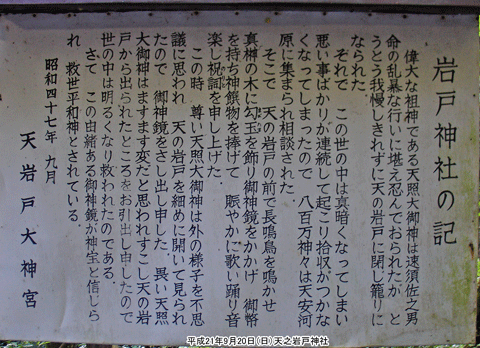 岩戸神社の記
偉大な祖神である天照大御神は速須佐之男
命の乱暴な行いに堪え忍んでおられたが と
うとう我慢しきれずに天の岩戸に閉じ籠りに
なられた
それで この世の中は真暗くなってしまい
悪い事ばかりが連続して起こり拾収がつかな
くなってしまったので 八百万神々は天安河
原に集まられ相談された
そこで 天の岩戸の前で長鳴鳥を鳴かせ
真榊の木に勾玉を飾り御神鏡をかかげ 御幣
を持ち神饌物を捧げて 賑やかに歌い踊り音
楽し祝詞を申し上げた
この時 尊い天照大御神は外の様子を不思
議に思われ 天の岩戸を細めに開いて見られ
たので 御神鏡をさし出し申した 異い天照
大御神はますます変だと思われすこし天の岩
戸から出られたところをお引出し申したので
世の中は明るくなり救われたのである
さて この由緒ある御神鏡が神宝と信じら
れ 救世平和神とされている
昭和四十七年 九月
天岩戸大神宮
平成21年9月20日(日)天之岩戸神社